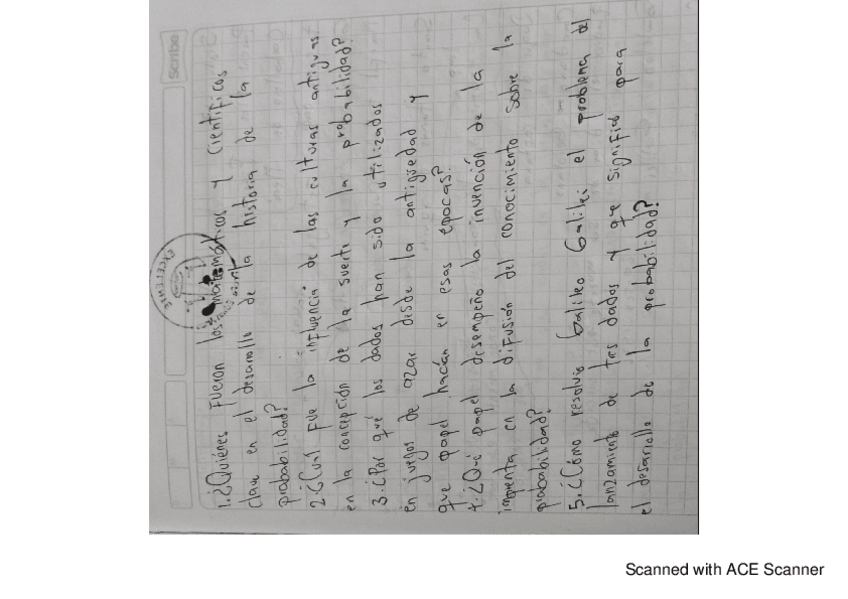 Scribe
EXCELENTE
1.¿Quiénes Fueron los matemáticos y Científicos
clave en el desarrollo de la historia de la
probabilidad?
2.¿Cual Fue la influencia de las culturas antiguas
en la concepción de la suerte y la probabilidad?
3.¿Por qué los dados han sido utilizados
en juegos de azar desde la antigüedad y
que papel hacían en esas epocas?
4.¿Qué papel desempeño la invención de la
imprenta en la difusión del conocimiento sobre la
probabilidad?
5.¿Cómo resolvio Galileo Galilei el problema del
lanzamiento de tres dados y que significó para
el desarrollo de la probabilidad?
Scanned with ACE Scanner